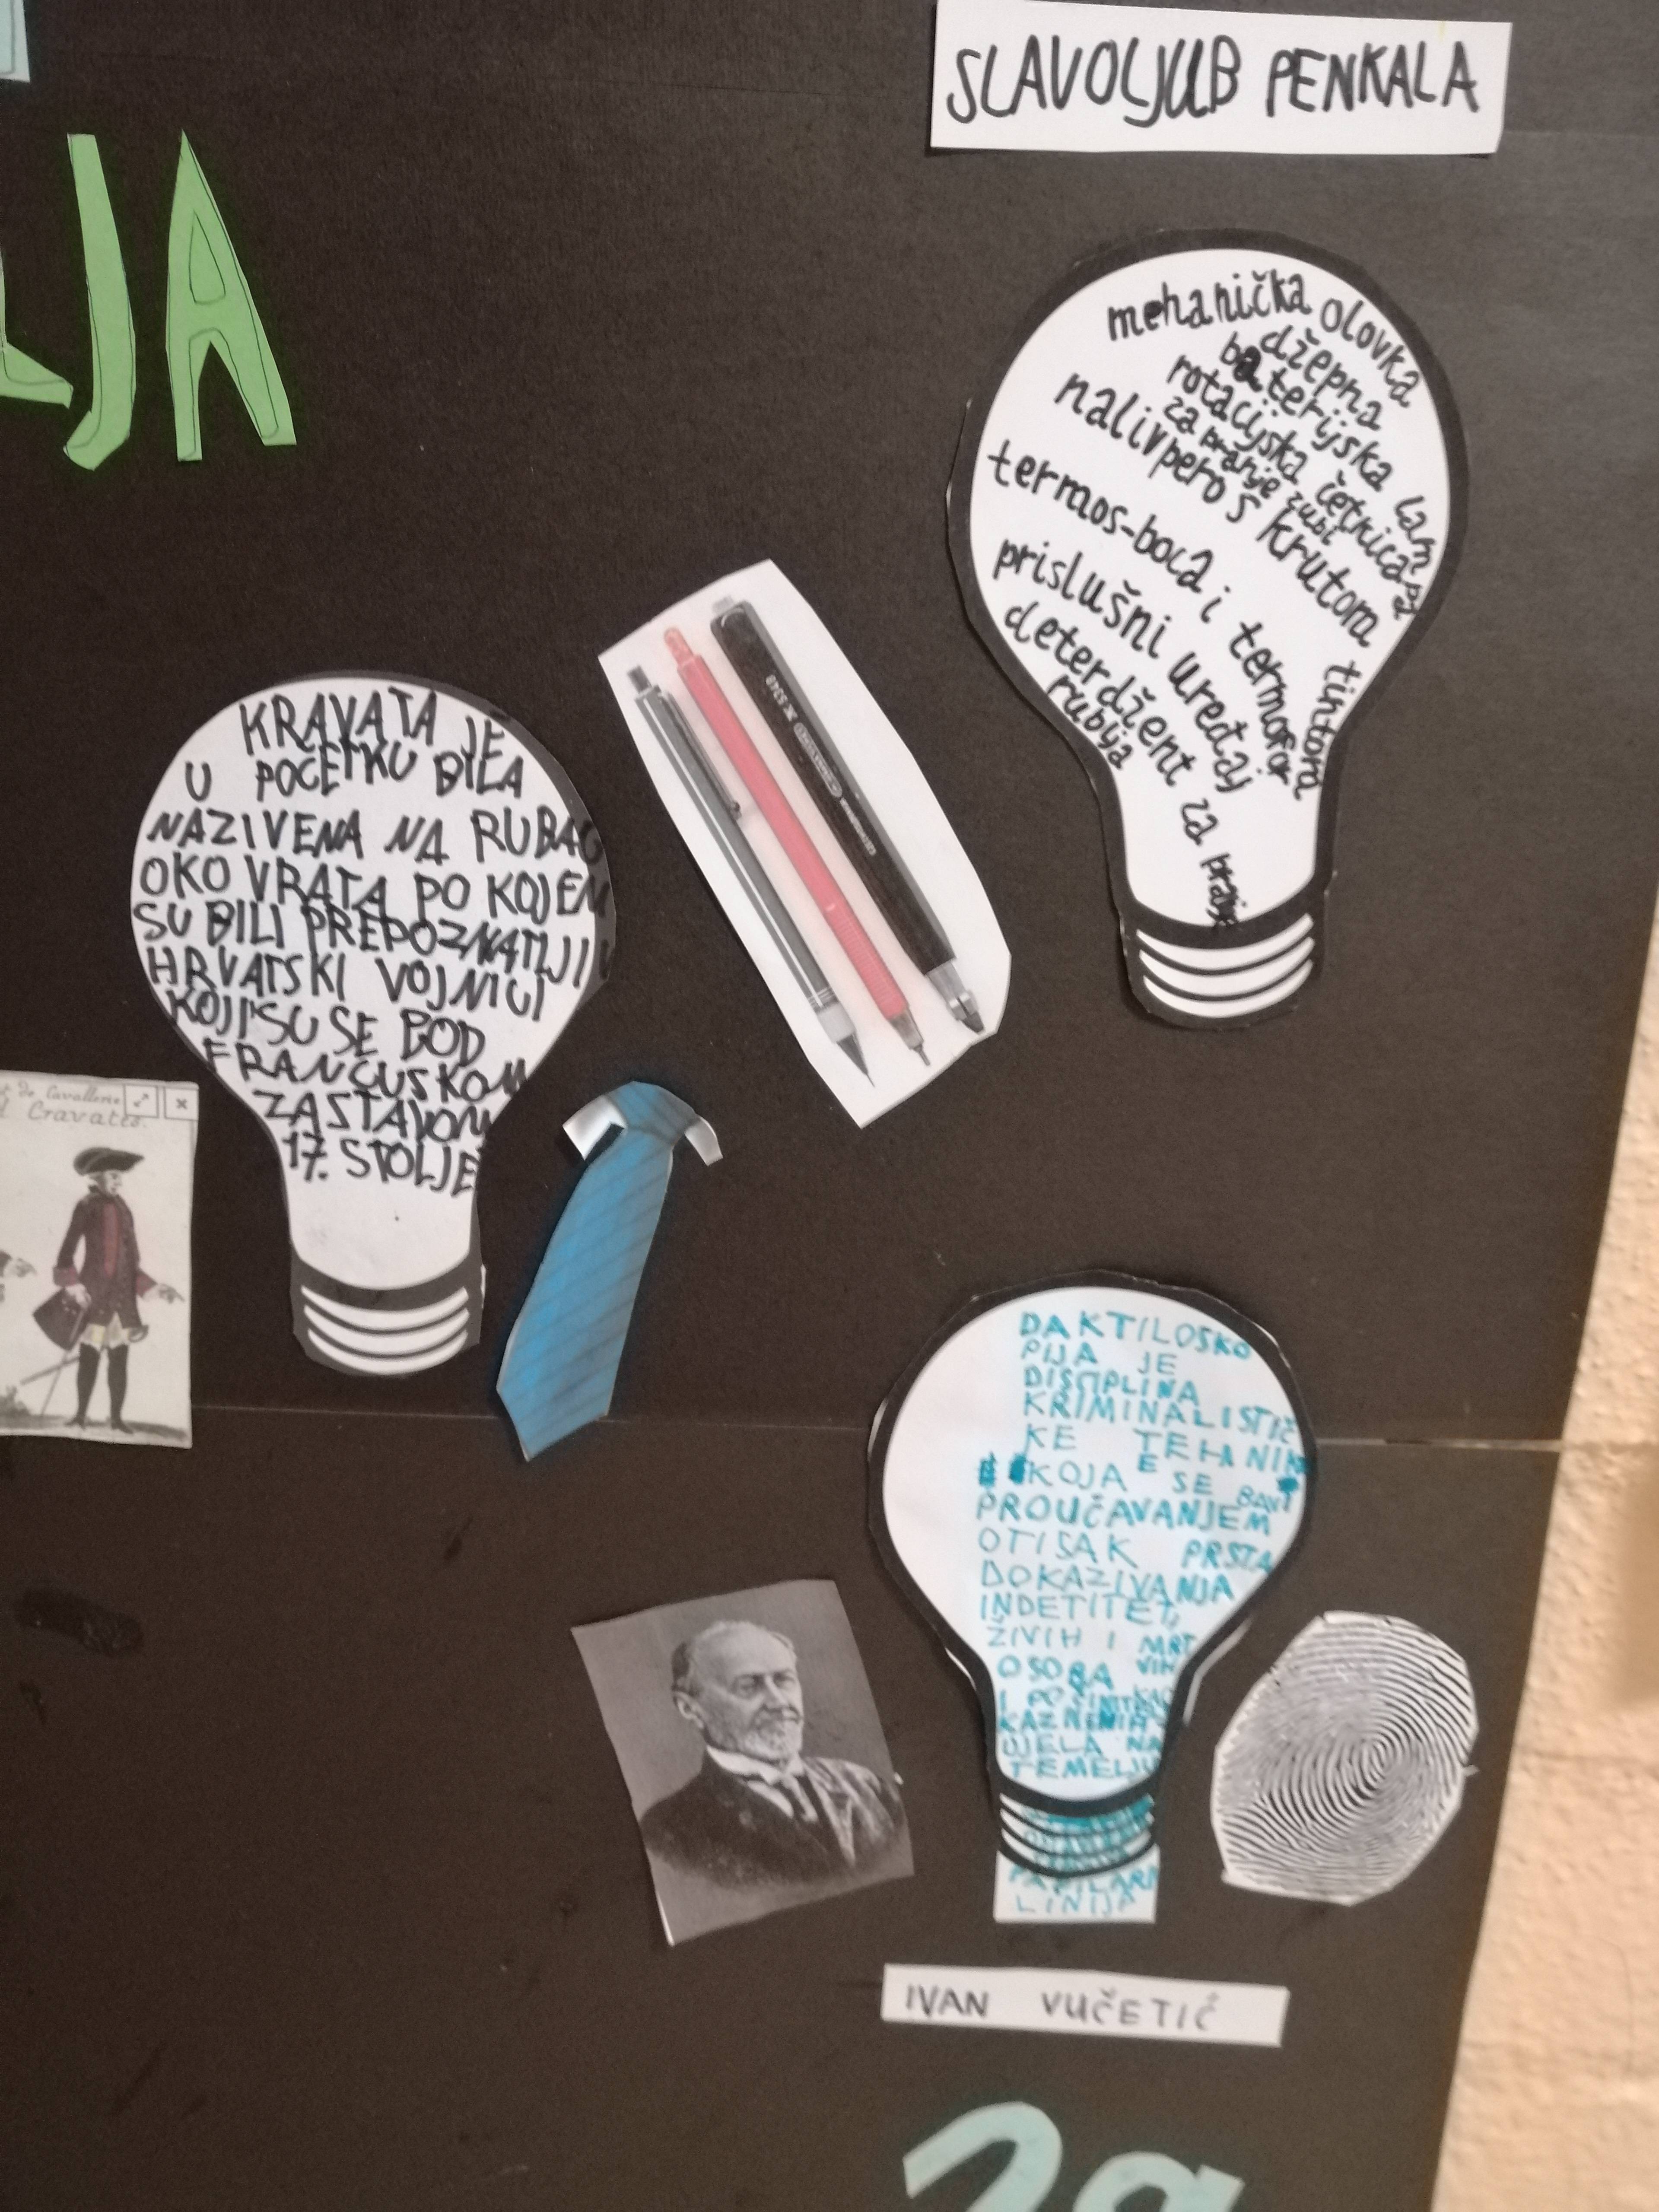 LJA
SLAVOLJUB PENKALA
mehanička olovka
džepna
baterijska lam
rotacijska četkica
za pranje zubi
nalivpero s krutom tintom
termos-boca i termofor
prislušni uređaj
deterdžent za pranje
rublja
KRAVATA JE
U POČETKU BILA
NAZIVENA NA RUBAC
OKO VRATA PO KOJEM
SU BILI PREPOZNATLJIVI
HRVATSKI VOJNICI
KOJI SU SE POD
FRANCUSKOM
ZASTAVOM
17. STOLJE
de Cavallerie
Cravates.
DAKTILOSKO
PIJA JE
DISCIPLINA
KRIMINALISTIČ
KE TEHNIK
E
KOJA SE BAVI
PROUČAVANJEM
OTISAK PRSTA
DOKAZIVANJA
INDETITET,
ŽIVIH I MRT
OSOBA VIH
I
KAZNENIH
DJELA NA
TEMELJU
PAPILARN
LINIJA
IVAN VUČETIĆ
za